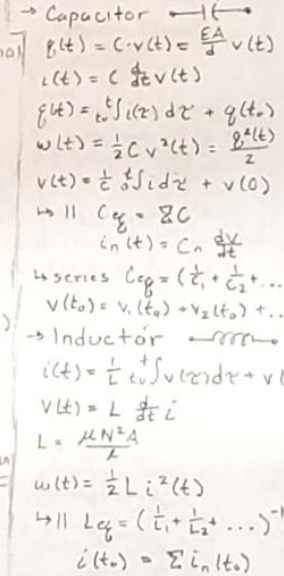 → Capacitor
q(t) = C·v(t) = EA/d v(t)
i(t) = C d/dt v(t)
q(t) = t₀∫ᵗ i(τ) dτ + q(t₀)
w(t) = 1/2 C v²(t) = q²(t)/2
v(t) = 1/C ₀∫ᵗ i dτ + v(0)
↳ || Ceq = ΣC
iₙ(t) = Cₙ dv/dt
↳ series Ceq = (1/C₁ + 1/C₂ + ...
v(t₀) = v₁(t₀) + v₂(t₀) + ..
→ Inductor
i(t) = 1/L t₀∫ᵗ v(τ) dτ + v(
v(t) = L d/dt i
L = μN²A/l
w(t) = 1/2 L i²(t)
↳ || Leq = (1/L₁ + 1/L₂ + ...)⁻¹
i(t₀) = Σ iₙ(t₀)